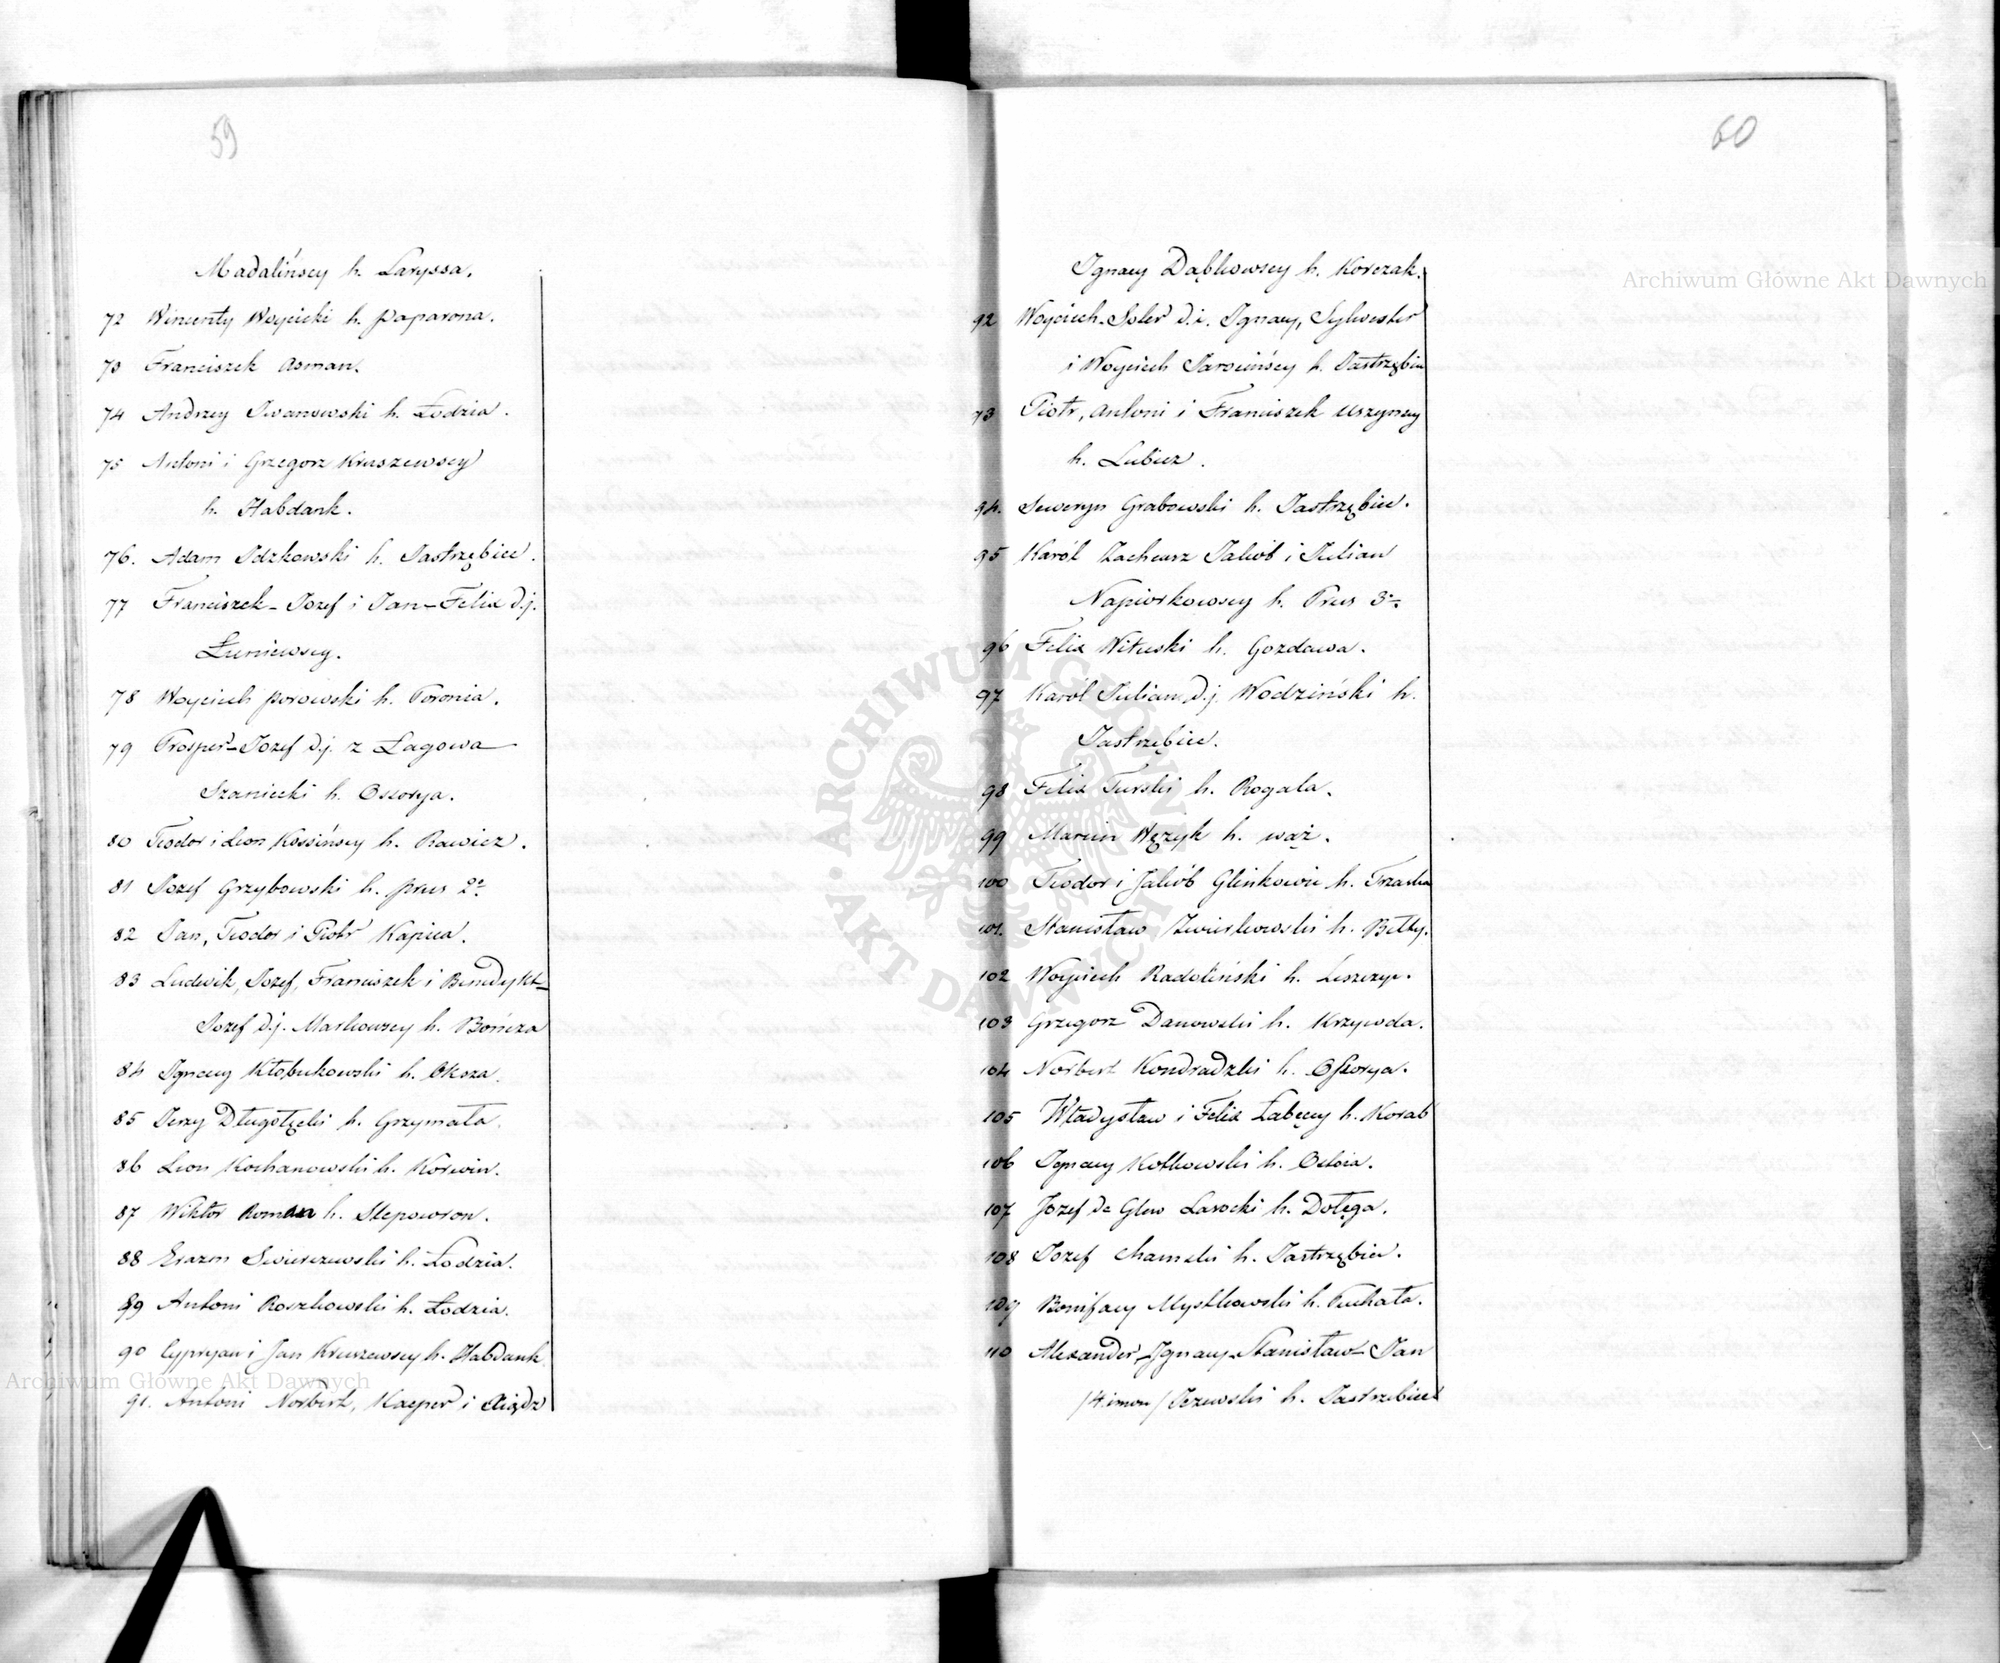 59
Madalińscy h. Laryssa.
72 Wincenty Woycicki h. Paparona.
73 Franciszek Osman.
74 Andrzey Iwanowski h. Łodzia.
75 Antoni i Grzegorz Kruszewscy
h. Habdank.
76. Adam Idzkowski h. Jastrzębiec.
77 Franciszek-Jozef i Jan-Felix d.j.
Łuniewscy.
78 Woyciech Porowski h. Poronia.
79 Prosper-Jozef d.j. z Łagowa
Szaniecki h. Ossorya.
80 Teodor i Leon Kossińscy h. Rawicz.
81 Jozef Grzybowski h. Prus 2º
82 Jan, Teodor i Piotr Kapica.
83 Ludwik, Jozef, Franciszek i Benedykt-
Jozef d.j. Markowscy h. Bończa
84 Ignacy Kłobukowski h. Oksza.
85 Jerzy Długołęcki h. Grzymała.
86 Leon Kochanowski h. Korwin.
87 Wiktor Roman h. Slepowron.
88 Erazm Swierczewski h. Łodzia.
89 Antoni Roszkowski h. Łodzia.
90 Cypryan i Jan Kruszewscy h. Habdank
91. Antoni Norbert, Kacper i Xiądz
60
Ignacy Dąbkowscy h. Korczak.
92 Woyciech-Soler d.i. Ignacy, Sylwester
i Woyciech Jarocińscy h. Jastrzębiec
93 Piotr, Antoni i Franciszek Uszyńscy
h. Lubicz.
94. Seweryn Grabowski h. Jastrzębiec.
95 Karól Zacheusz Jakób i Julian
Napiorkowscy h. Prus 3º.
96 Felix Wituski h. Gozdawa.
97 Karól Julian d.j. Wodziński h.
Jastrzębiec.
98 Felix Turski h. Rogala.
99 Marcin Wężyk h. wąż.
100 Teodor i Jakób Glinkowie h. Trzaska
101. Stanisław Zwierkowski h. Bełty.
102 Woyciech Radoliński h. Leszczyc.
103 Grzegorz Danowski h. Krzywda.
104 Norbert Kondradzki h. Ossorya.
105 Władysław i Felix Łabęccy h. Korab
106 Ignacy Kotkowski h. Ostoia.
107 Jozef de Glew Larocki h. Dołęga.
108 Jozef Chamski h. Jastrzębiec.
109 Bonifacy Mystkowski h. Puchała.
110 Alexander-Ignacy-Stanisław-Jan
/4. imon/ Jezewski h. Jastrzebiec
Archiwum Główne Akt Dawnych
Archiwum Główne Akt Dawnych
ARCHIWUM GŁÓWNE
AKT DAWNYCH